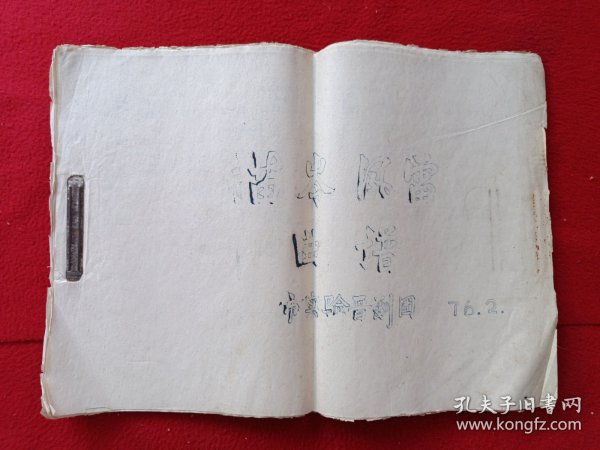 风雷
曲谱
市实验晋剧团 76.2.
孔夫子旧书网
www.kongfz.com